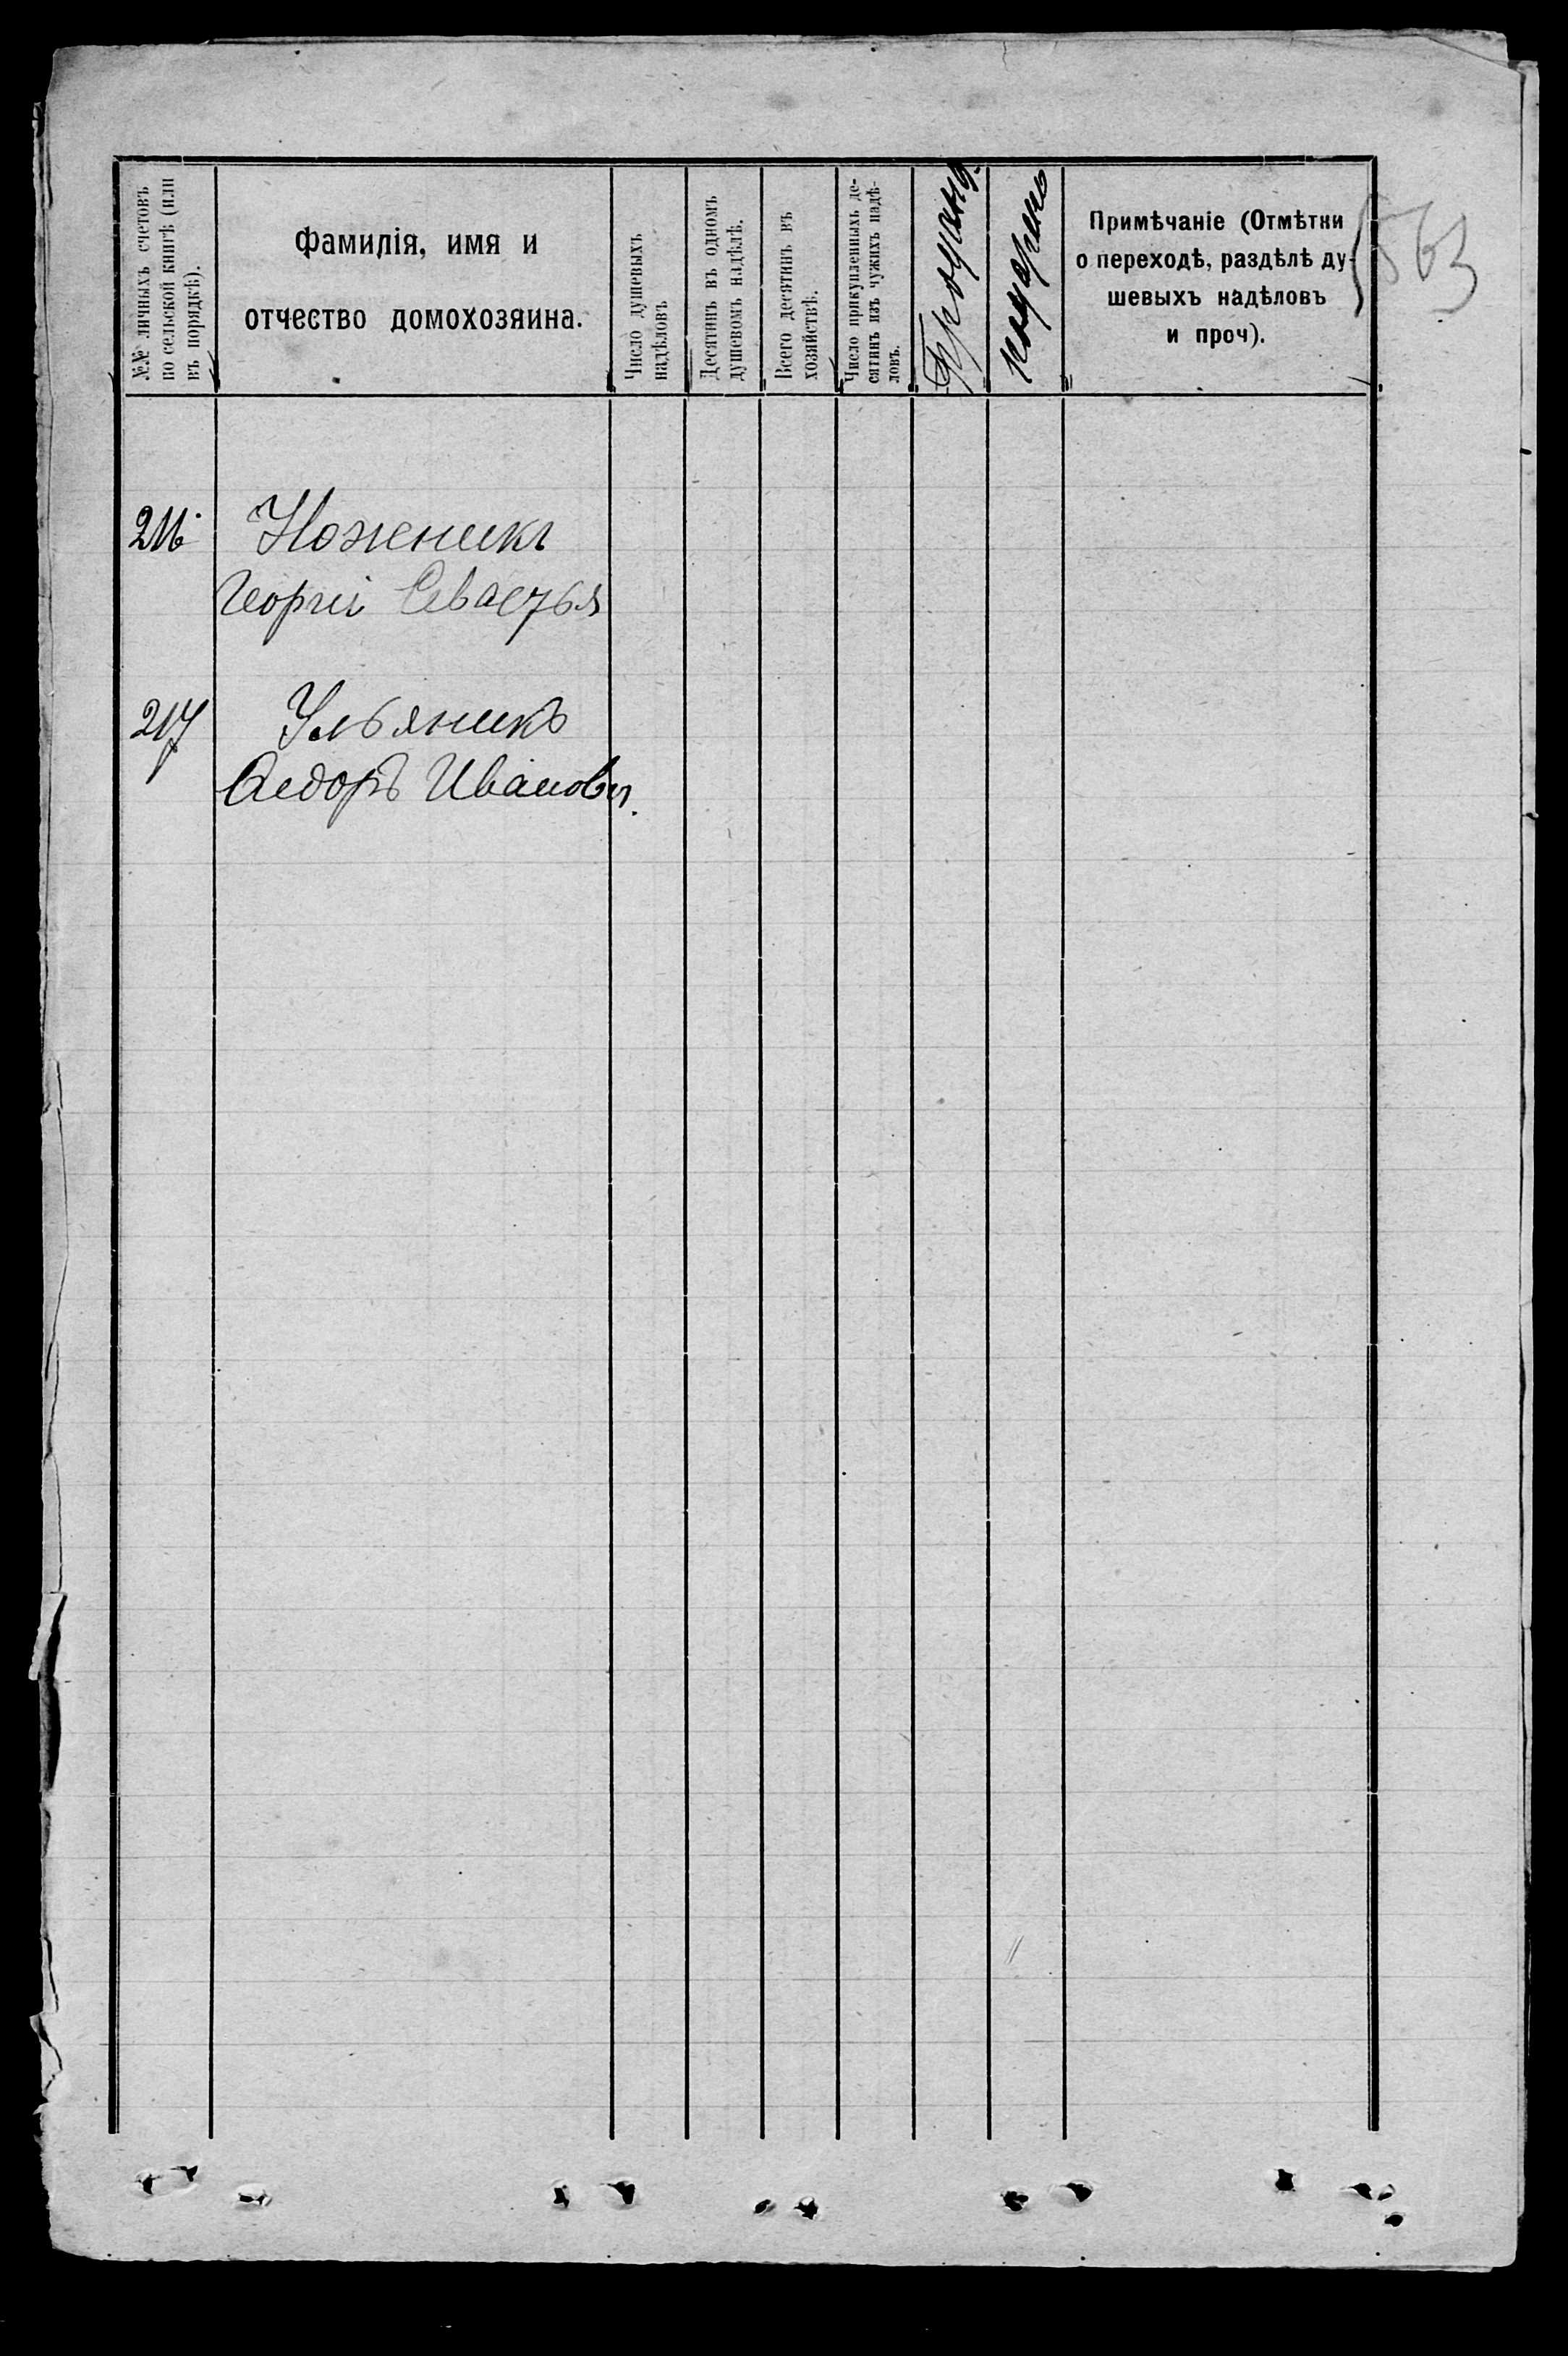 №№ личныхъ счетовъ
по сельской книгѣ (или
въ порядкѣ).
Фамилія, имя и
отчество домохозяина.
Число душевыхъ
надѣловъ
Десятинъ въ одномъ
душевомъ надѣлѣ.
Всего десятинъ въ
хозяйствѣ.
Число прикупленныхъ де-
сятинъ изъ чужихъ надѣ-
ловъ.
Примѣчаніе (Отмѣтки
о переходѣ, раздѣлѣ ду-
шевыхъ надѣловъ
и проч).
563
216
Ноженикъ
Георгій Севастья
217
Ульяникъ
Ѳедоръ Иванович.